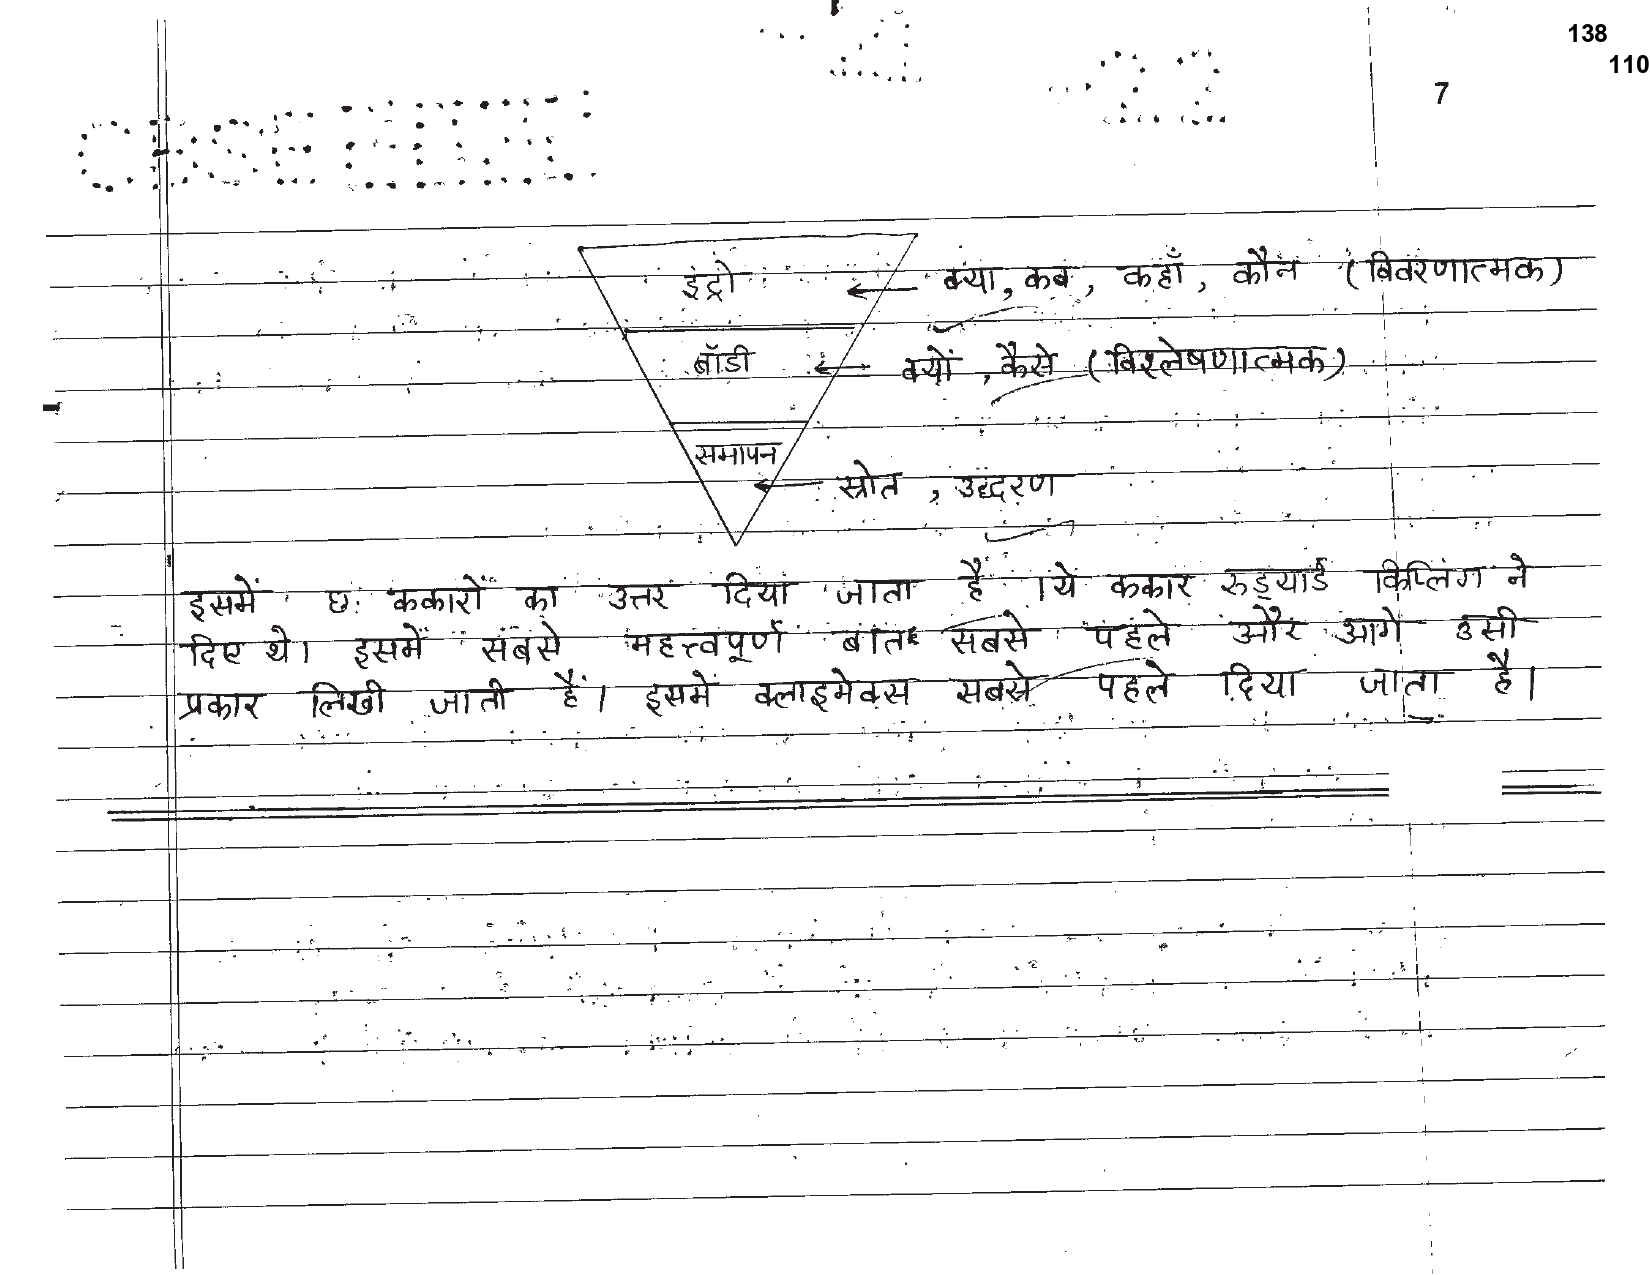 138
110
7
इंट्रो ← क्या, कब, कहाँ, कौन (विवरणात्मक)
बॉडी ← क्यों, कैसे (विश्लेषणात्मक)
समापन
← स्रोत, उद्धरण
इसमें छः ककारों का उत्तर दिया जाता है । ये ककार रुड्यार्ड किप्लिंग ने
दिए थे। इसमें सबसे महत्त्वपूर्ण बात सबसे पहले और आगे उसी
प्रकार लिखी जाती हैं। इसमें क्लाइमेक्स सबसे पहले दिया जाता है।